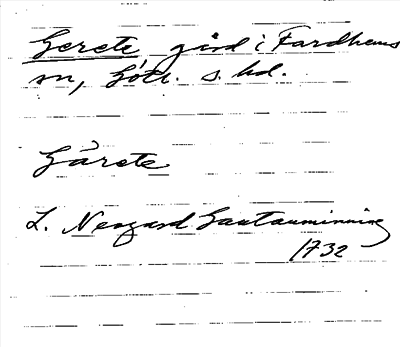 Gerete gård i Fardhems
sn, Gotl. s. hd.
Gårete
L. Neogard Gautauminning
1732